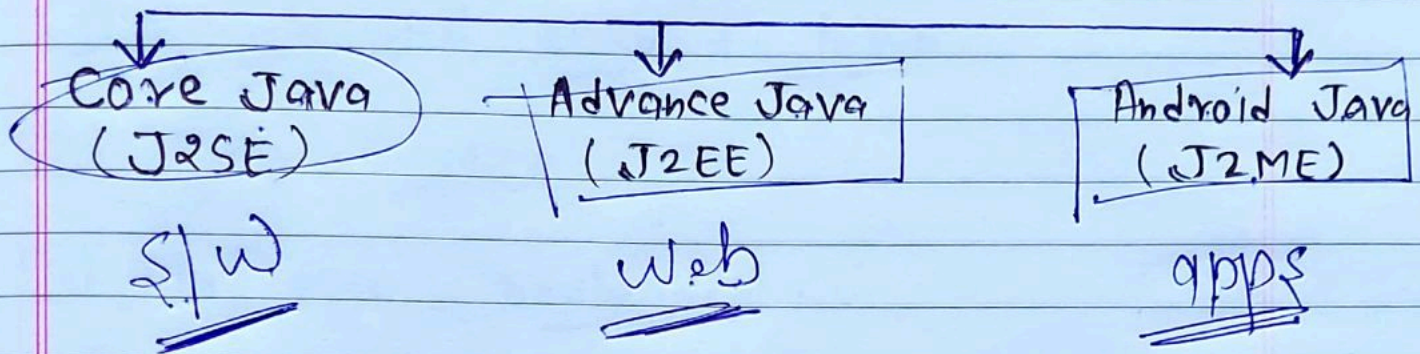 Core Java
(J2SE)
Advance Java
(J2EE)
Android Java
(J2ME)
S/W
Web
apps